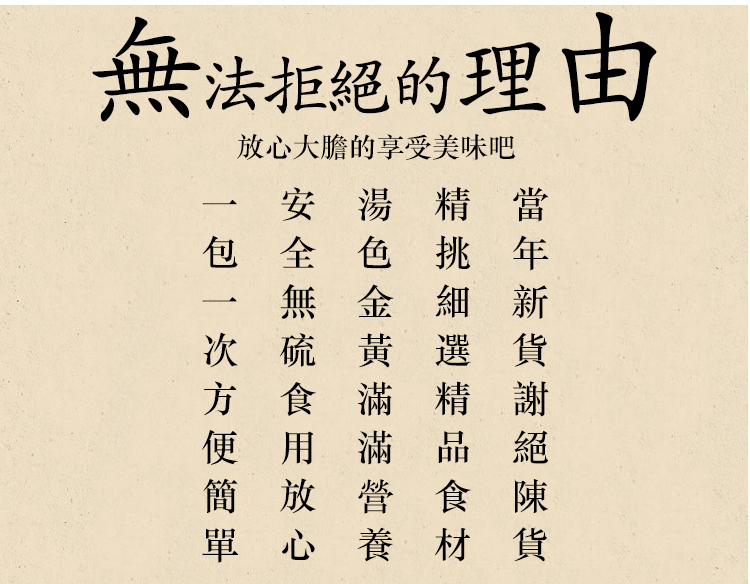 無法拒絕的理由
放心大膽的享受美味吧
當年新貨謝絕陳貨
精挑細選精品食材
湯色金黃滿滿營養
安全無硫食用放心
一包一次方便簡單